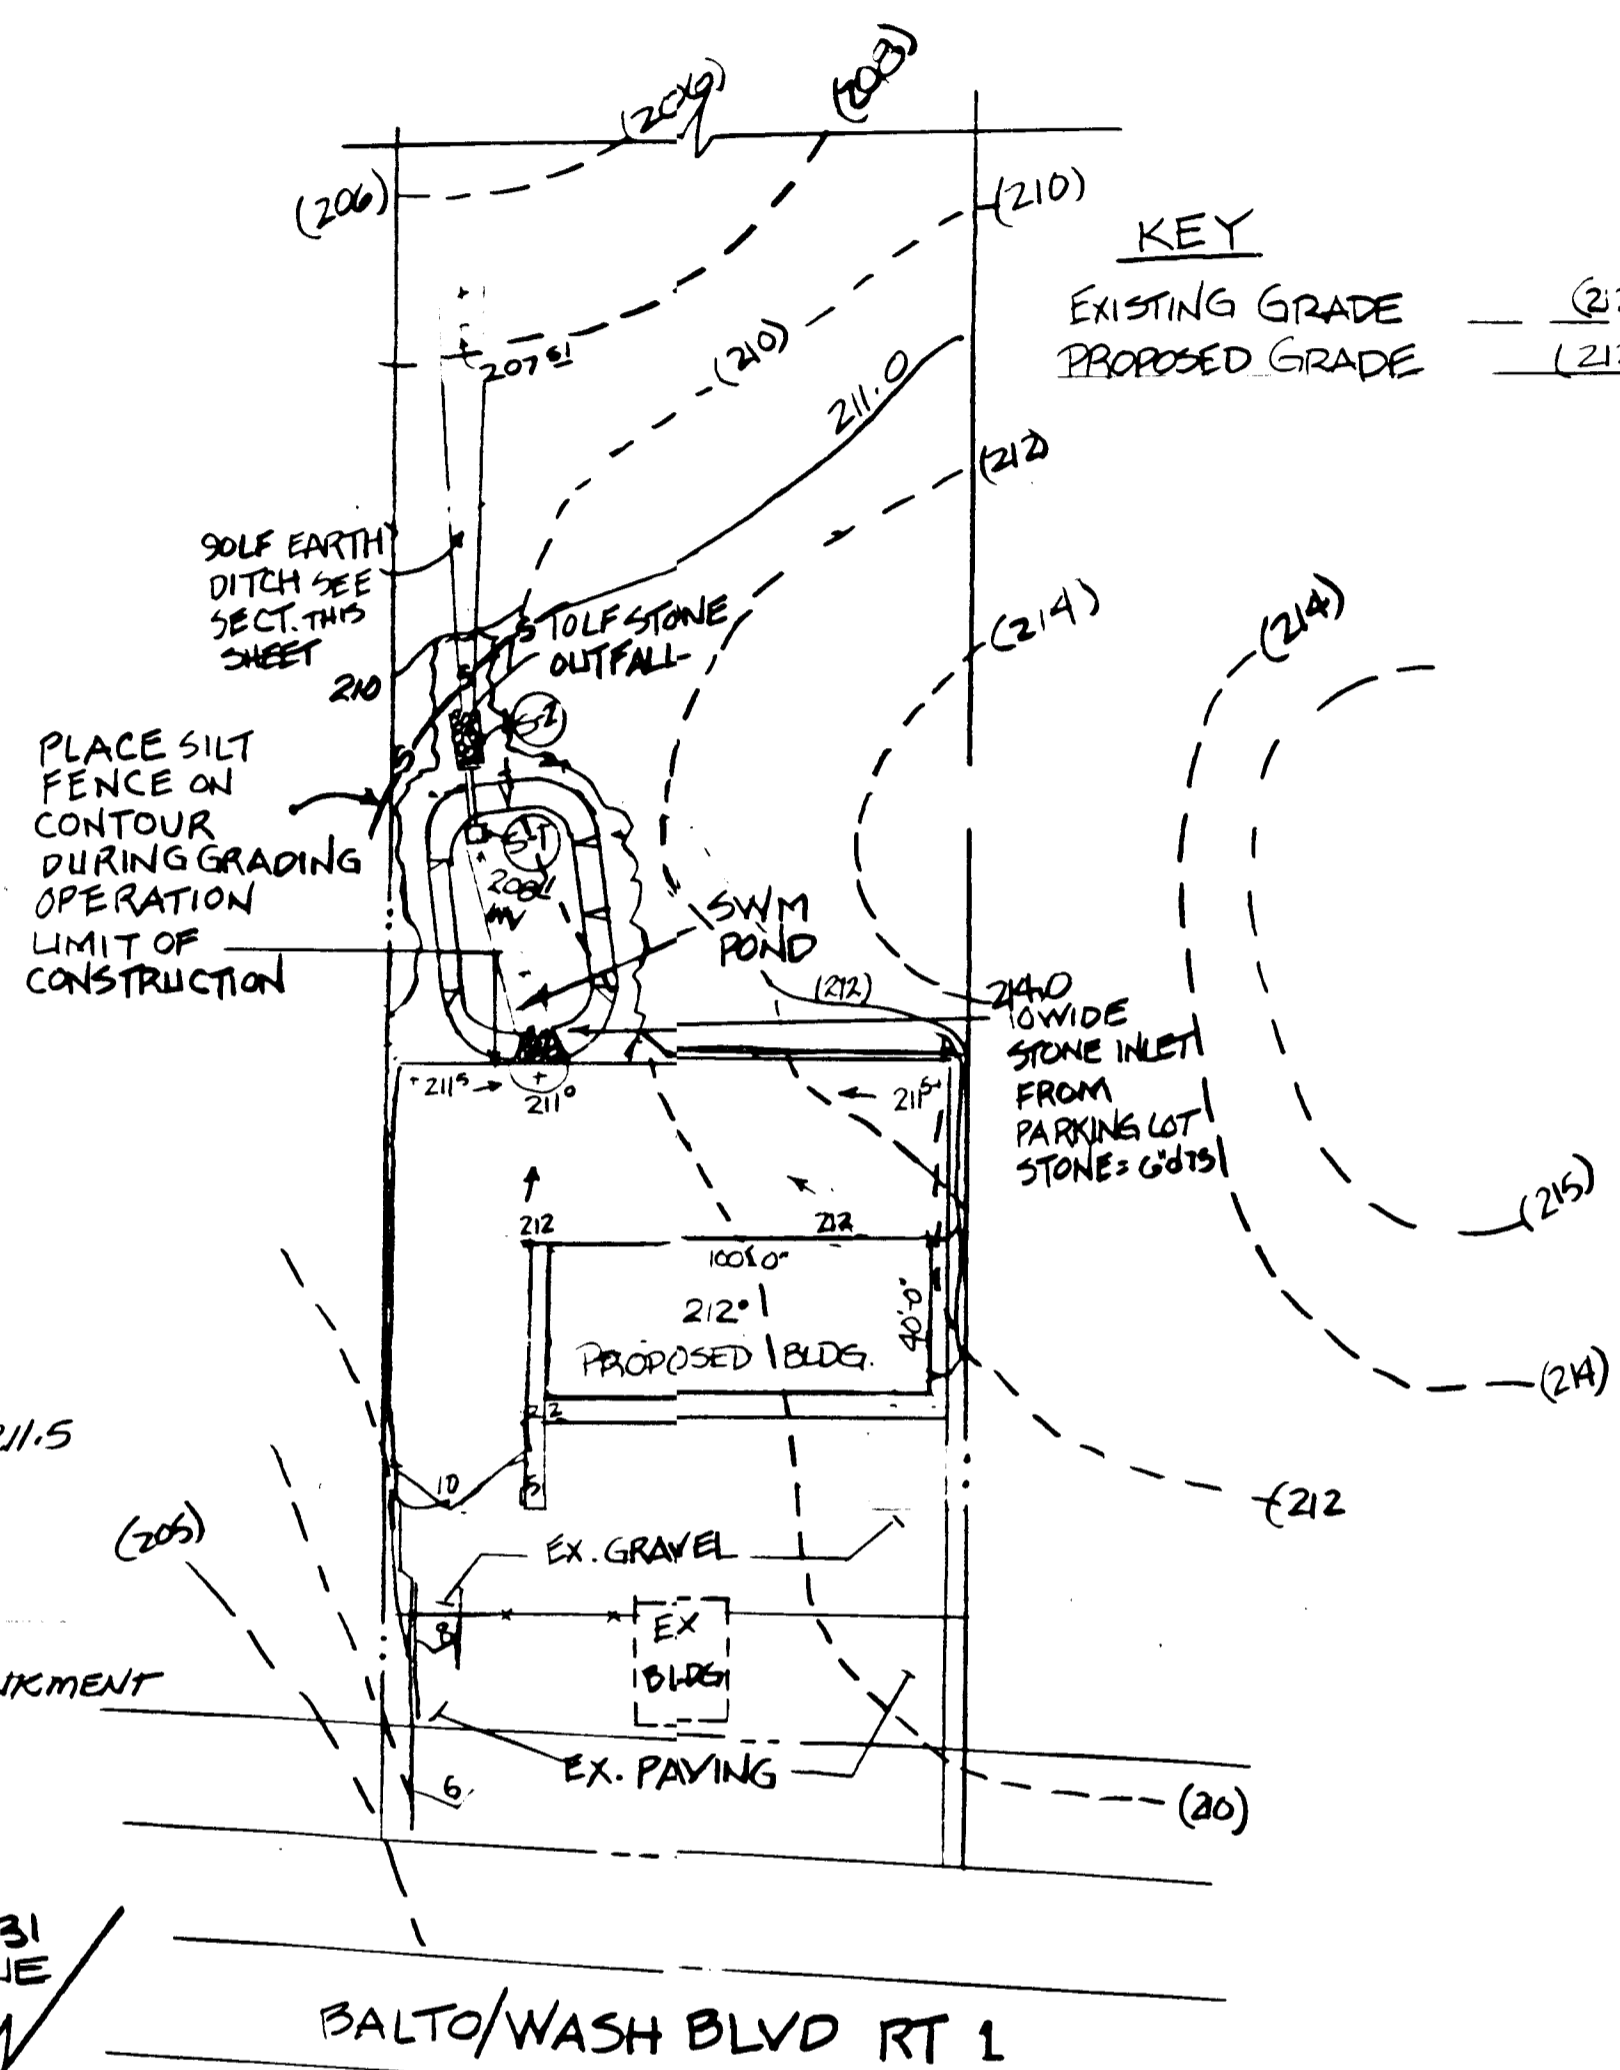 (206)
(208)
(206)
(210)
KEY
EXISTING GRADE
PROPOSED GRADE
207 51
(210)
211.0
(212)
90LF EARTH
DITCH SEE
SECT. THIS
SHEET
10LF STONE
OUTFALL
(214)
(214)
210
S-2
PLACE SILT
FENCE ON
CONTOUR
DURING GRADING
OPERATION
LIMIT OF
CONSTRUCTION
S-1
SWM
POND
(212)
214.0
10WIDE
STONE INLET
FROM
PARKING LOT
+211⁵
211⁰
211⁵
(215)
212
212
100'0"
212⁰
40'-0"
PROPOSED BLDG.
(214)
211.5
10
(212
(205)
EX. GRAVEL
8
EX
BLDG
EX. PAVING
6
(210)
31
BALTO/WASH BLVD RT 1